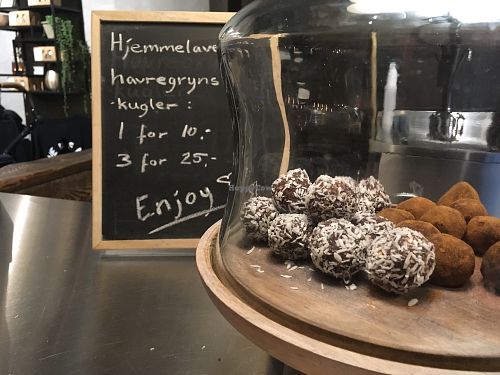 Hjemmelave
havregryns
-kugler:
1 for 10,-
3 for 25,-
Enjoy